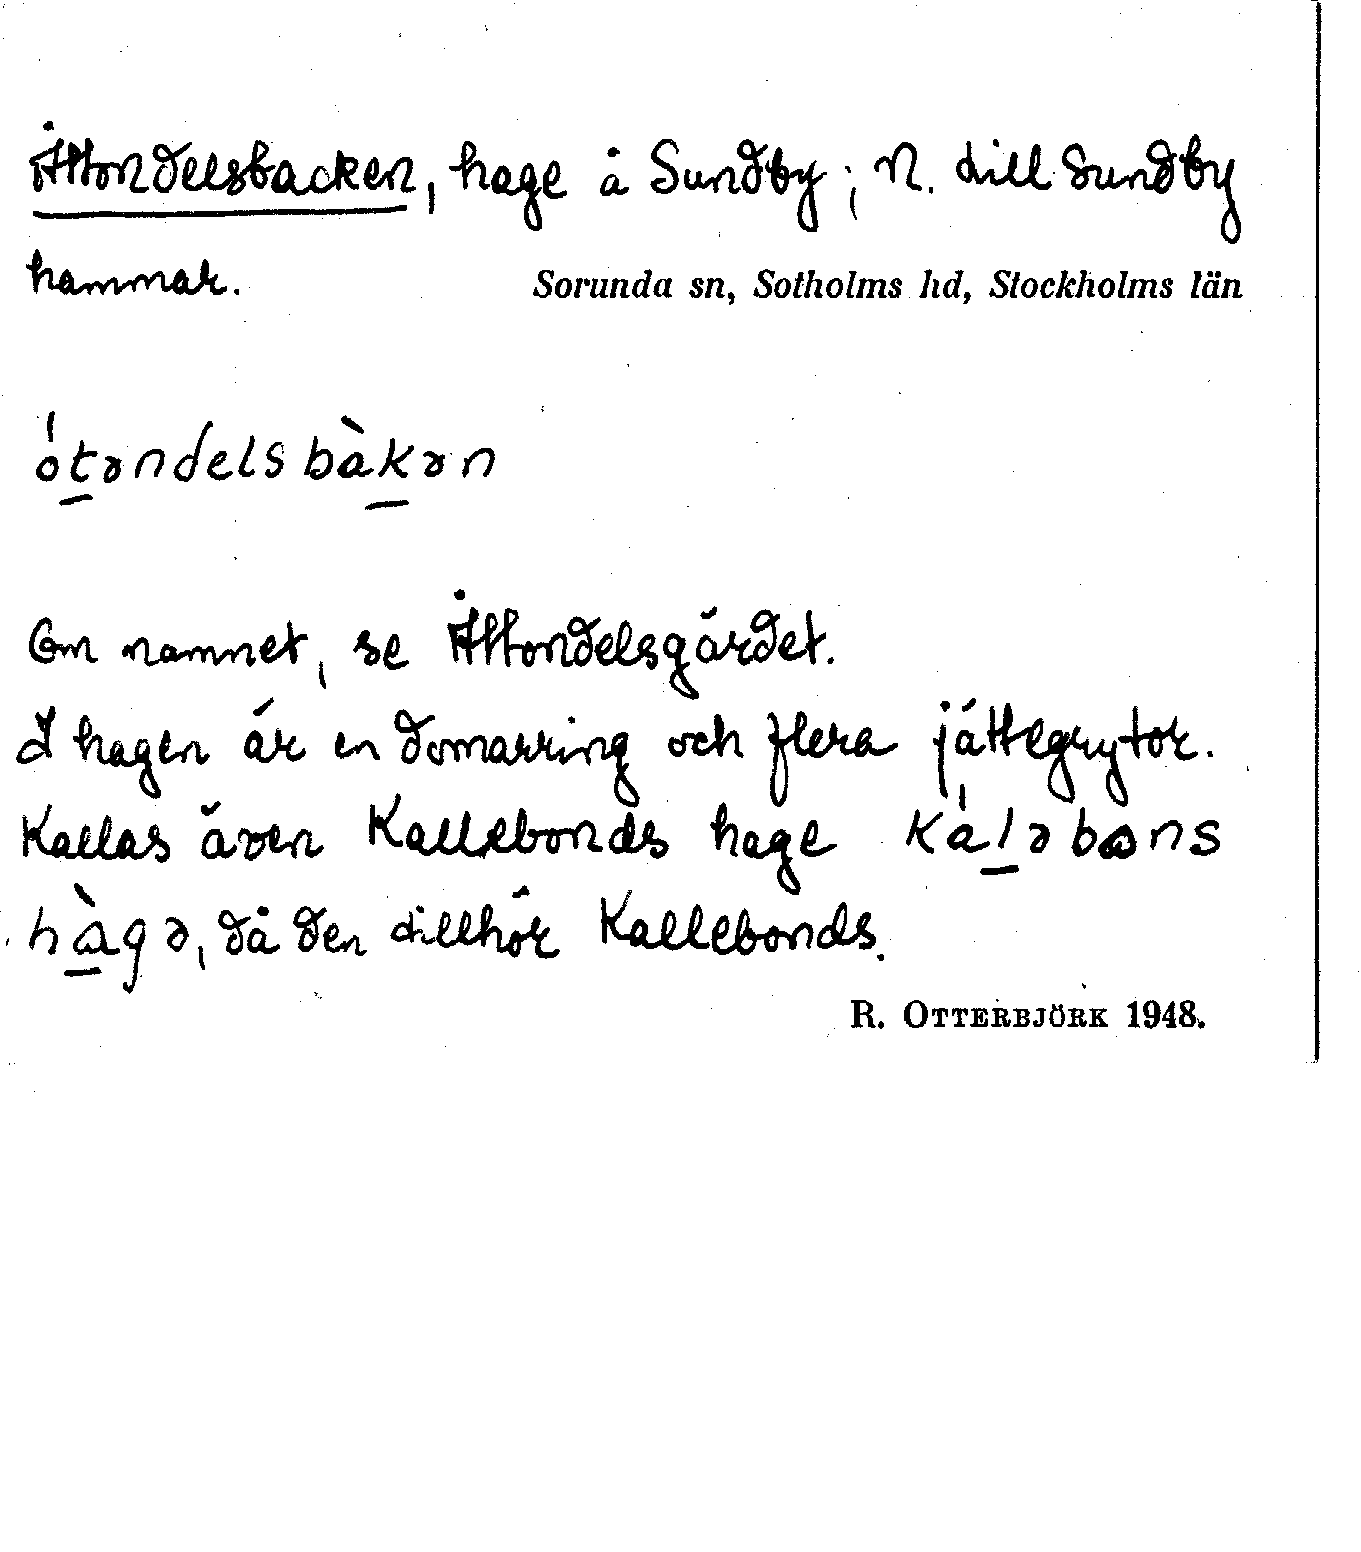 Åttondelsbacken, hage å Sundby; N. till Sundby
hammar.
Sorunda sn, Sotholms hd, Stockholms län
ótəndelsbàkən
Om namnet, se Åttondelsgärdet.
I hagen är en domarring och flera jättegrytor.
Kallas även Kallebonds hage káləbons
hàgə, då den tillhör Kallebonds.
R. OTTERBJÖRK 1948.